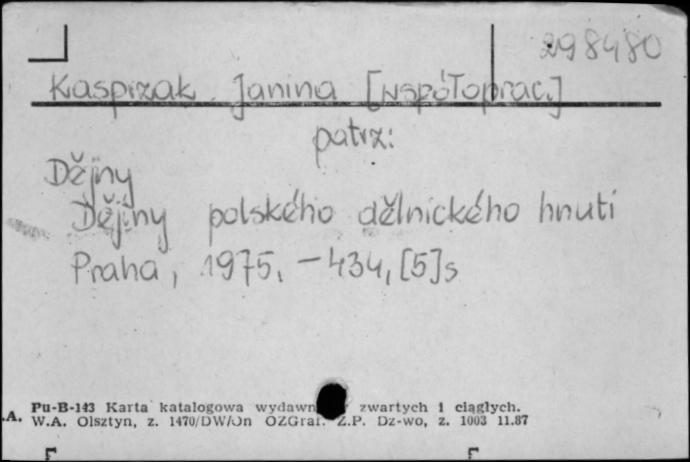 298480
Kasprzak Janina [współoprac.]
patrz:
Dějiny
Dějiny polského dělnického hnutí
Praha, 1975, — 434, [5] s
Pu-B-143 Karta katalogowa zwartych i ciągłych.
.A. W.A. Olsztyn, z. 1470/DW/Jn OZGraf. Z.P. Dz-wo, z. 1003 11.87